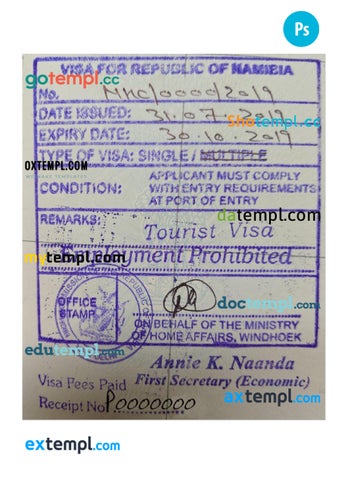 Ps
VISA FOR REPUBLIC OF NAMIBIA
gotempl.cc
No. NHC/0000/2019
DATE ISSUED: 31.07.2019
Shotempl.cc
EXPIRY DATE: 30.10.2019
TYPE OF VISA: SINGLE / MULTIPLE
OXTEMPL.COM
CONDITION: APPLICANT MUST COMPLY
WITH ENTRY REQUIREMENTS
AT PORT OF ENTRY
datempl.com
REMARKS:
Tourist Visa
mytempl.com
Employment Prohibited
OFFICE
STAMP
doctempl.com
ON BEHALF OF THE MINISTRY
OF HOME AFFAIRS, WINDHOEK
edutempl.com
Annie K. Naanda
Visa Fees Paid First Secretary (Economic)
Receipt No P0000000
axtempl.com
extempl.com